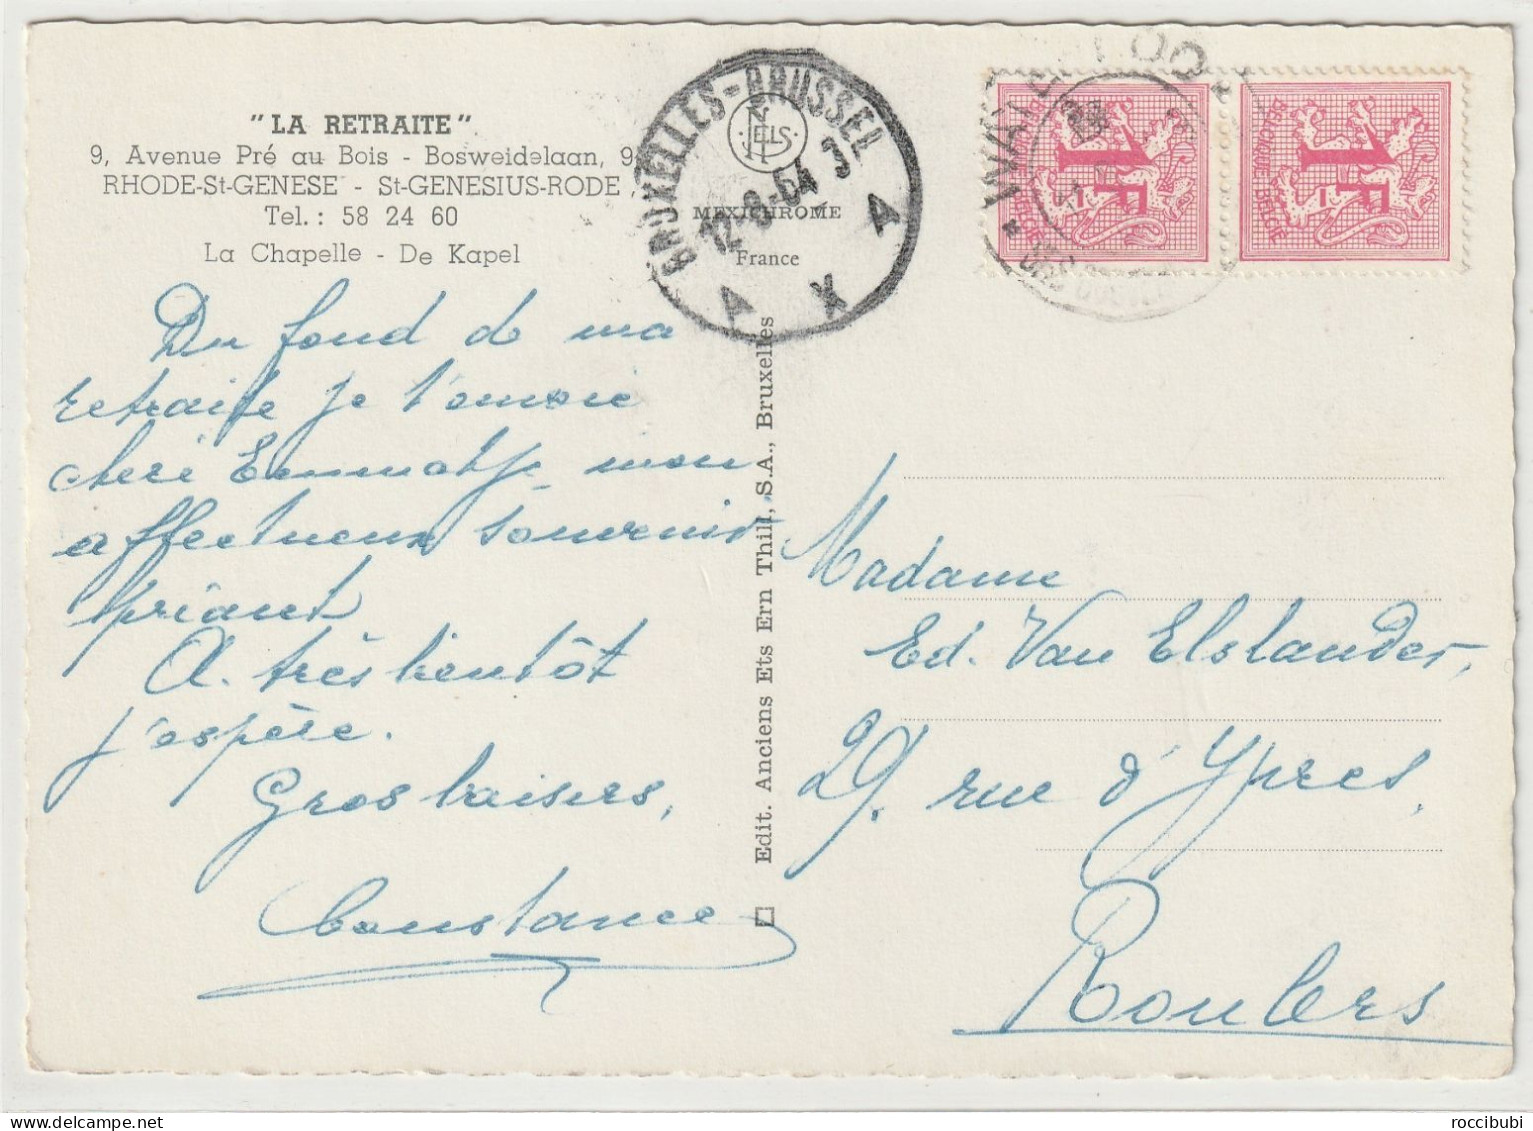 "LA RETRAITE"
9, Avenue Pré au Bois - Bosweidelaan, 9
RHODE-St-GENESE - St-GENESIUS-RODE
Tel.: 58 24 60
La Chapelle - De Kapel
Du fond de ma
retraite je t'envoie
chère mon
affectueux souvenir
priant
A très bientôt
j'espère.
Gros baisers,
Constance
BRUXELLES-BRUSSEL
12-8-64
A X A
NELS
MEXICHROME
France
Edit. Anciens Ets Ern Thill, S.A., Bruxelles
1F
BELGIQUE BELGIE
1F
BELGIQUE BELGIE
Madame
Ed. Van Elslander,
29, rue d'Ypres,
Roulers
roccibubi